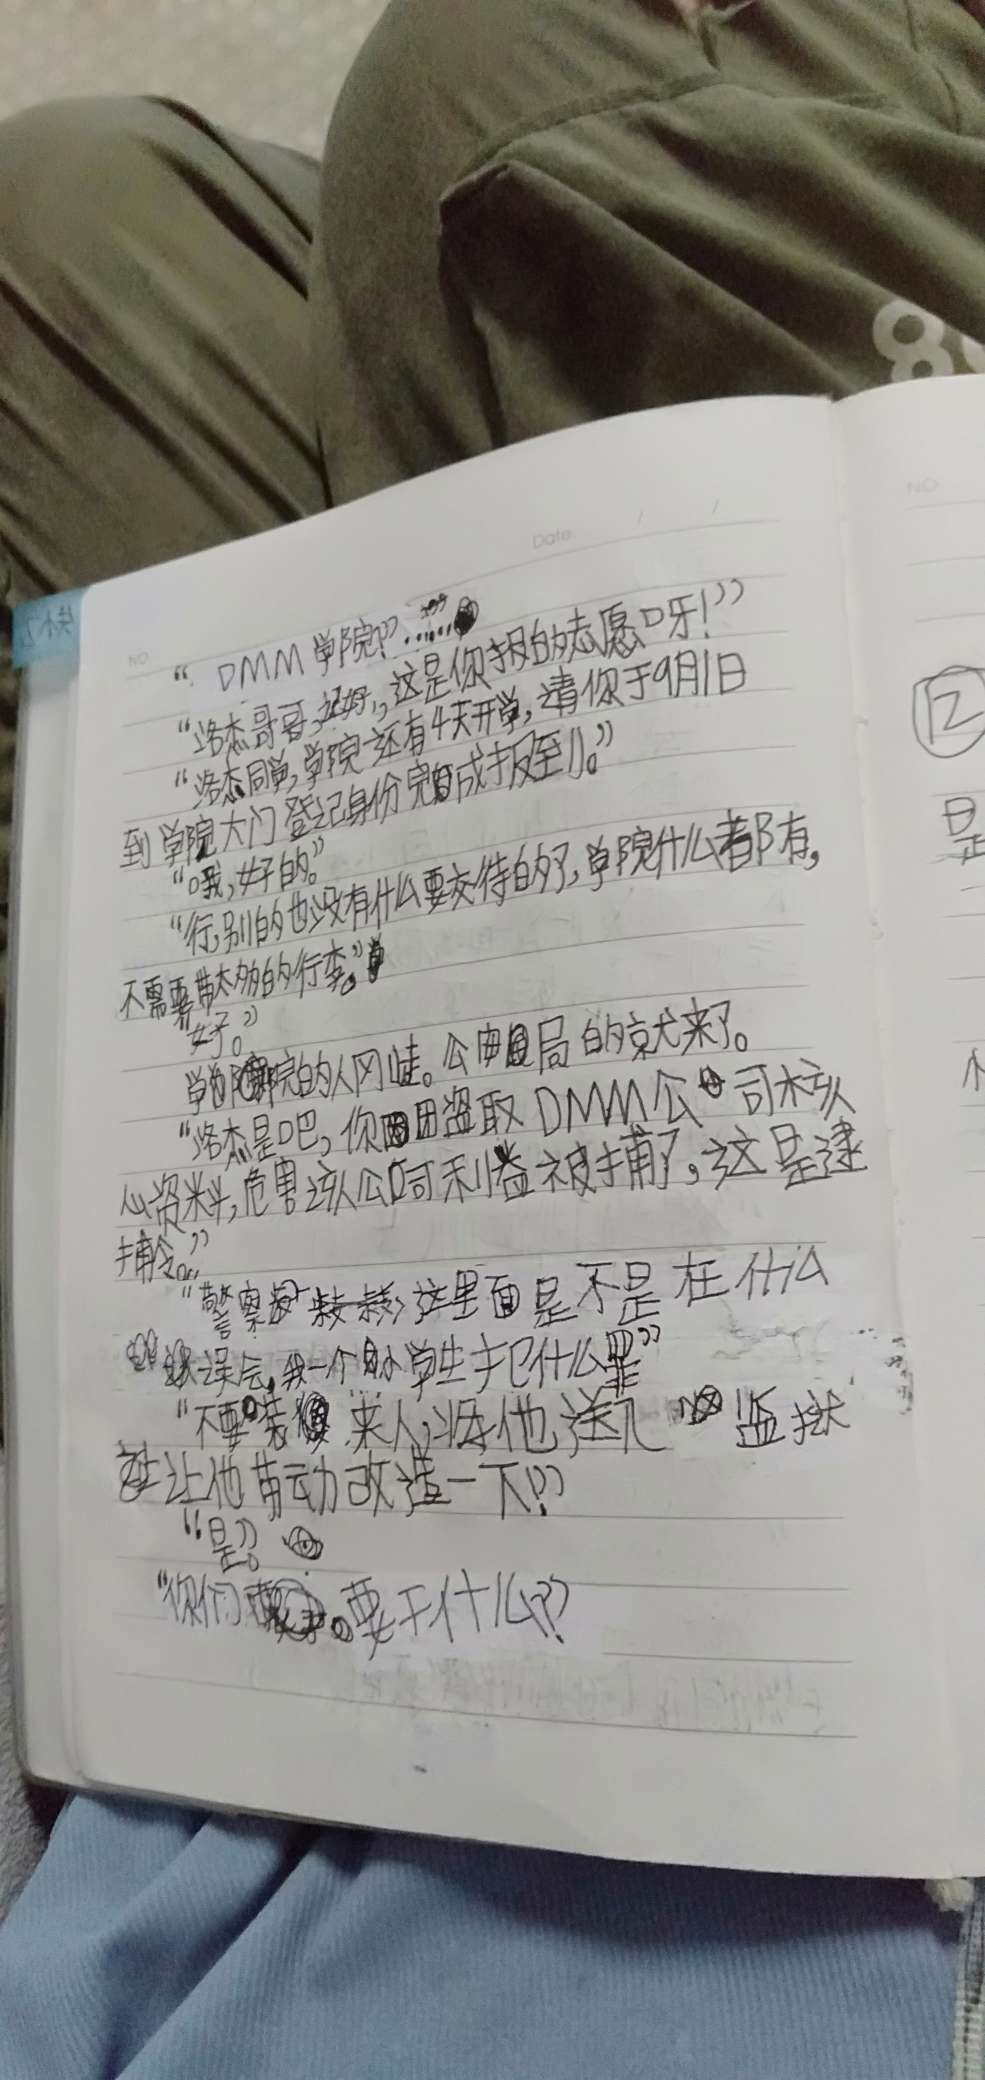 Date / /
NO
NO
“DMM学院？”……”
“洛杰哥哥，你好，这是你报的志愿呀！”
“洛杰同学，学院还有4天开学，请你于9月1日
到学院大门登记身份完成报到。”
“哦，好的。”
“行，别的也没有什么要交待的了，学院什么都有，
不需要带太多的行李。”
“好。”
学院的人刚走。公安局的就来了。
“洛杰是吧，你因盗取DMM公司核
心资料，危害该公司利益被捕了，这是逮
捕令。”
“警察叔叔，这里面是不是在什么
误会，我一个小学生犯什么罪”
“不要装 来人，将他送入监狱
让他劳动改造一下！”
“是。”
“你们 要干什么？”
12
是